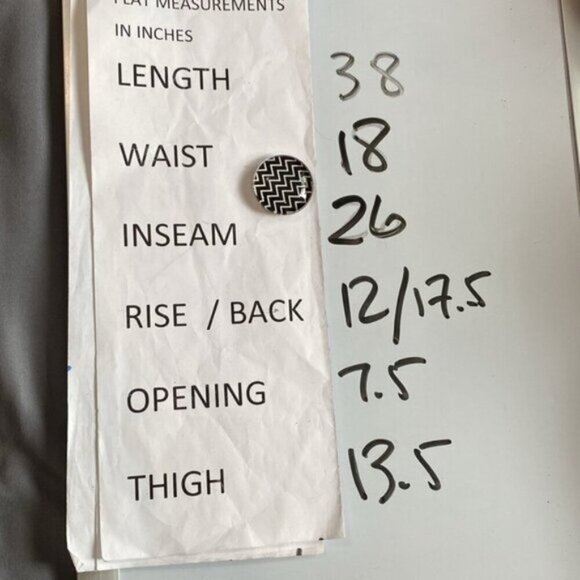 FLAT MEASUREMENTS
IN INCHES
LENGTH 38
WAIST 18
INSEAM 26
RISE / BACK 12/17.5
OPENING 7.5
THIGH 13.5